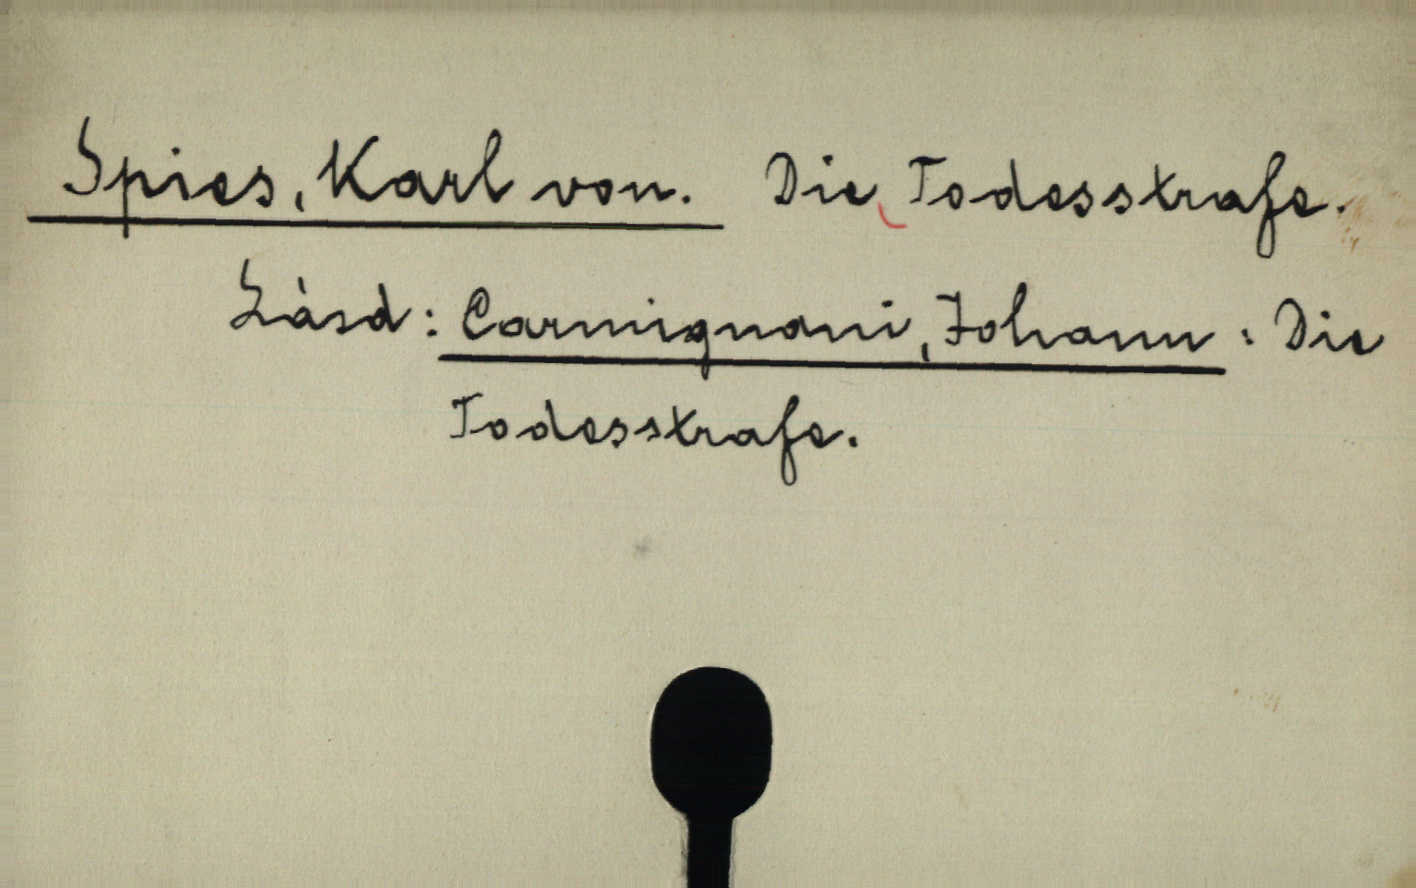 Spies, Karl von. Die Todesstrafe.
Lásd: Carmignani, Johann: Die
Todesstrafe.